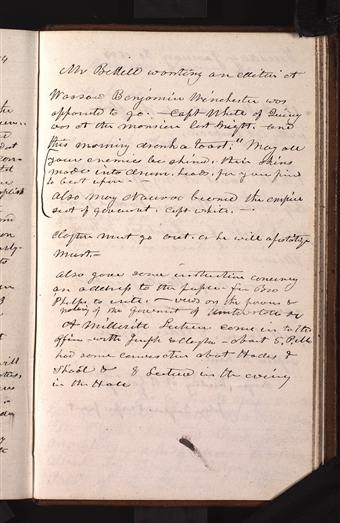 Mr Bedell wanting an editor at
Warsaw Benjamin Winchester was
appointed to go. — Capt White of Quincy
was at the mansion last night. and
this morning drank a toast. "May all
your enemies be skined, their skins
made into drum heads for your friends
to beat upon. —
Also may Nauvoo become the empire
seat of government. Capt white. —
must go out. or he will apostatize
Must. —
Also gave some instructions concerning
an address to the paper for Bro
Phelps to write. — views on the powers &
policy of the Government of United States &c
A Millerite Lecturer came in to the
office with Joseph
had some conversation about Hades &
Sheol & & Lectured in the evening
in the Hall